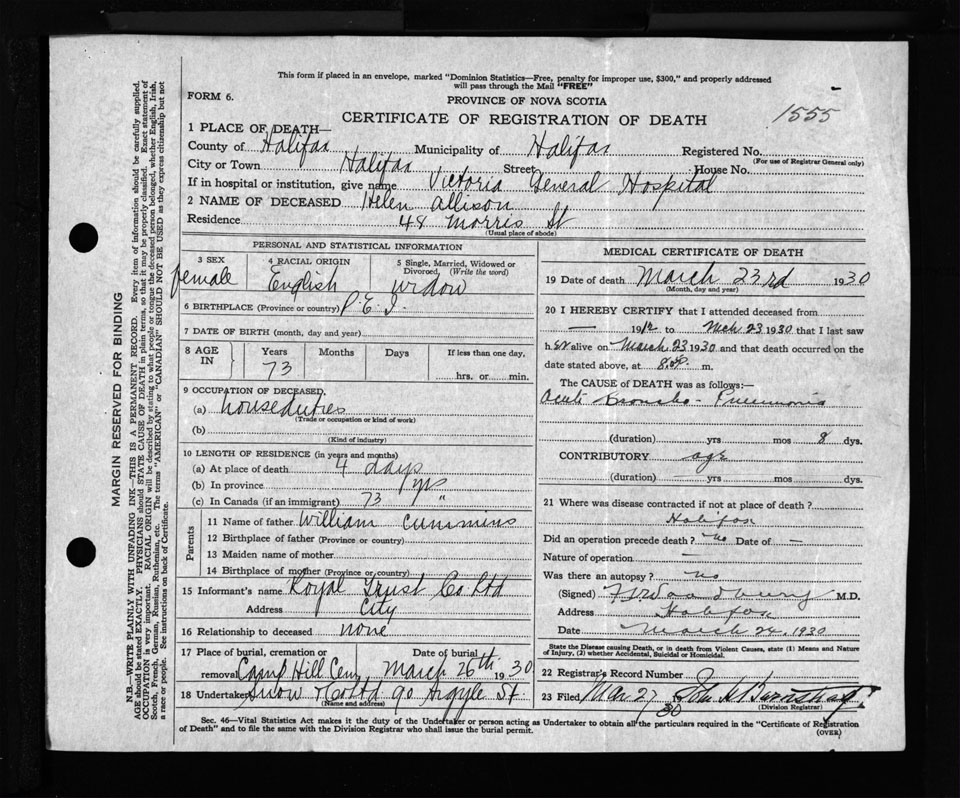 This form if placed in an envelope, marked "Dominion Statistics—Free, penalty for improper use, $300," and properly addressed
will pass through the Mail "FREE"
FORM 6.
PROVINCE OF NOVA SCOTIA
1555
CERTIFICATE OF REGISTRATION OF DEATH
1 PLACE OF DEATH—
County of Halifax Municipality of Halifax Registered No.
(For use of Registrar General only)
City or Town Halifax Street House No.
If in hospital or institution, give name Victoria General Hospital
2 NAME OF DECEASED Helen Allison
Residence 48 Morris St
(Usual place of abode)
PERSONAL AND STATISTICAL INFORMATION
3 SEX 4 RACIAL ORIGIN 5 Single, Married, Widowed or Divorced, (Write the word)
female English widow
6 BIRTHPLACE (Province or country) P.E.I.
7 DATE OF BIRTH (month, day and year)
8 AGE IN Years Months Days If less than one day,
73
hrs. or min.
9 OCCUPATION OF DECEASED,
(a) house duties
(Trade or occupation or kind of work)
(b)
(Kind of industry)
10 LENGTH OF RESIDENCE (in years and months)
(a) At place of death 4 days
(b) In province yrs
(c) In Canada (if an immigrant) 73 "
Parents
11 Name of father William Cummins
12 Birthplace of father (Province or country)
13 Maiden name of mother
14 Birthplace of mother (Province or country)
15 Informant's name Royal Trust Co Ltd
Address City
16 Relationship to deceased none
17 Place of burial, cremation or removal Date of burial
Camp Hill Cem March 26th 1930
18 Undertaker Snow & Co Ltd 90 Argyle St.
(Name and address)
MEDICAL CERTIFICATE OF DEATH
19 Date of death March 23rd 1930
(Month, day and year)
20 I HEREBY CERTIFY that I attended deceased from
— 19 to Mch 23 1930 that I last saw
her alive on March 23 1930 and that death occurred on the
date stated above, at m.
The CAUSE OF DEATH was as follows:—
Acute Broncho-Pneumonia
(duration) yrs mos 8 dys.
CONTRIBUTORY age
(duration) yrs mos dys.
21 Where was disease contracted if not at place of death?
Halifax
Did an operation precede death? no Date of —
Nature of operation —
Was there an autopsy? no
(Signed) M.D.
Address Halifax
Date March 24, 1930
State the Disease causing Death, or in death from Violent Causes, state (1) Means and
Nature of Injury, (2) whether Accidental, Suicidal or Homicidal.
22 Registrar's Record Number
23 Filed Mar 27 30 John
(Division Registrar)
Sec. 46—Vital Statistics Act makes it the duty of the Undertaker or person acting as Undertaker to obtain all the particulars required in the "Certificate of Registration
of Death" and to file the same with the Division Registrar who shall issue the burial permit.
(OVER)
MARGIN RESERVED FOR BINDING
N.B.—WRITE PLAINLY WITH UNFADING INK—THIS IS A PERMANENT RECORD. Every item of information should be carefully supplied.
AGE should be stated EXACTLY. PHYSICIANS should STATE CAUSE OF DEATH in plain terms, so that it may be properly classified. Exact statement of
OCCUPATION is very important. RACIAL ORIGIN will be described by stating to what people or tongue the deceased person belonged, whether English, Irish,
Scotch, French, German, Russian, Ruthenian, etc. The terms "AMERICAN" or "CANADIAN" SHOULD NOT BE USED as they express citizenship but not
a race or people. See instructions on back of Certificate.